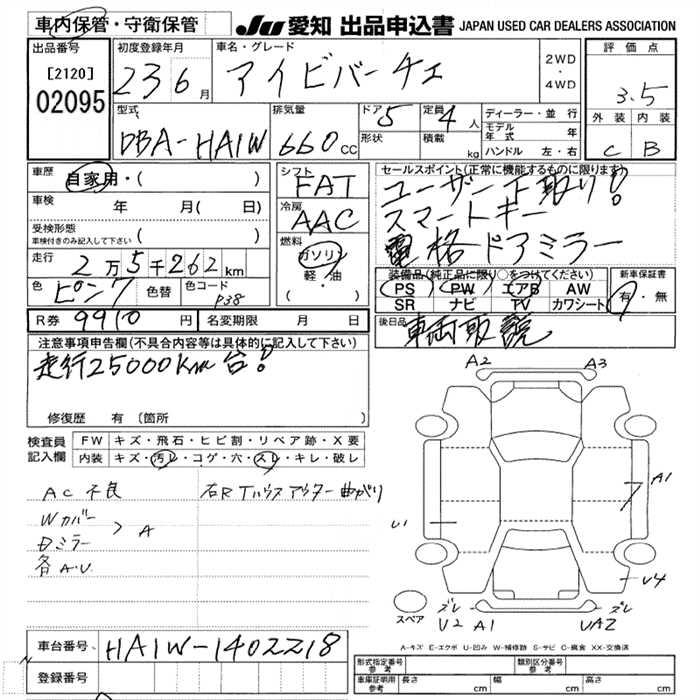 車内保管・守衛保管
JU 愛知 出品申込書 JAPAN USED CAR DEALERS ASSOCIATION
出品番号
[2120]
02095
初度登録年月
23 6月
車名・グレード
アイビバーチェ
2WD
・
4WD
評価点
3.5
外装 内装
C B
型式
DBA-HA1W
排気量
660cc
ドア 5
形状
定員 4人
積載 kg
ディーラー・並行
モデル年式 年
ハンドル 左・右
車歴
自家用・( )
車検 年 月( 日)
受検形態
車検付きのみ記入して下さい ( )
走行 2万5千262km
色 ピンク 色替 色コード P38
シフト
FAT
冷房
AAC
燃料
ガソリン
軽・油
( )
セールスポイント(正常に機能するものに限ります)
ユーザー下取り!
スマートキー
電格ドアミラー
装備品(純正品に限り○をつけてください)
PS PW エアB AW
SR ナビ TV カワシート
新車保証書
有・無
R券 9910円 名変期限 月 日
後日品
車両取説
注意事項申告欄(不具合内容等は具体的に記入して下さい)
走行25000Km台!
修復歴 有〔箇所 〕
検査員記入欄
FW キズ・飛石・ヒビ割・リペア跡・X要
内装 キズ・汚レ・コゲ・穴・スレ・キレ・破レ
AC不良
Wカバー
Dミラー > A
各A.U
右RTハウスアウター曲がり
A2 A3
A1
U1
U4
ズレ ズレ
U2 A1 UA2
スペア
A-キズ E-エクボ U-凹み W-補修跡 S-サビ C-腐食 XX-交換済
車台番号 HA1W-1402218
登録番号
形式指定番号 参考
類別区分番号 参考
車庫証明用 参考 長さ cm 幅 cm 高さ cm